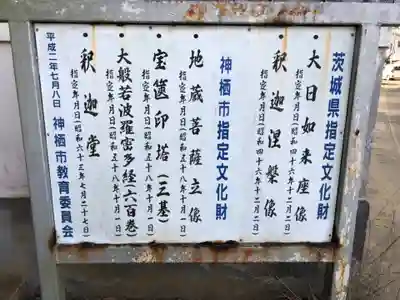 茨城県指定文化財
大日如来座像
指定年月日(昭和四十六年十二月二日)
釈迦涅槃像
指定年月日(昭和四十六年十二月二日)
神栖市指定文化財
地蔵菩薩立像
指定年月日(昭和五十八年十月一日)
宝篋印塔(三基)
指定年月日(昭和五十八年十月一日)
大般若波羅密多経(六百巻)
指定年月日(昭和五十八年十月一日)
釈迦堂
指定年月日(昭和六十三年七月二十七日)
平成二年七月八日
神栖市教育委員会